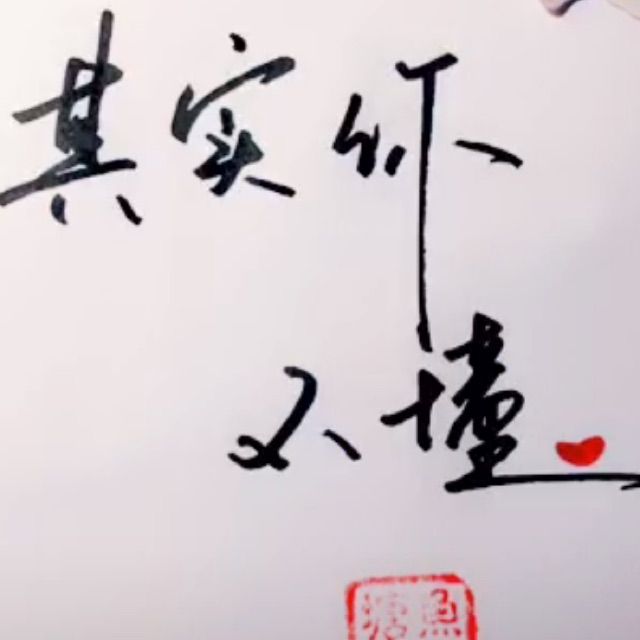 其实你
不懂